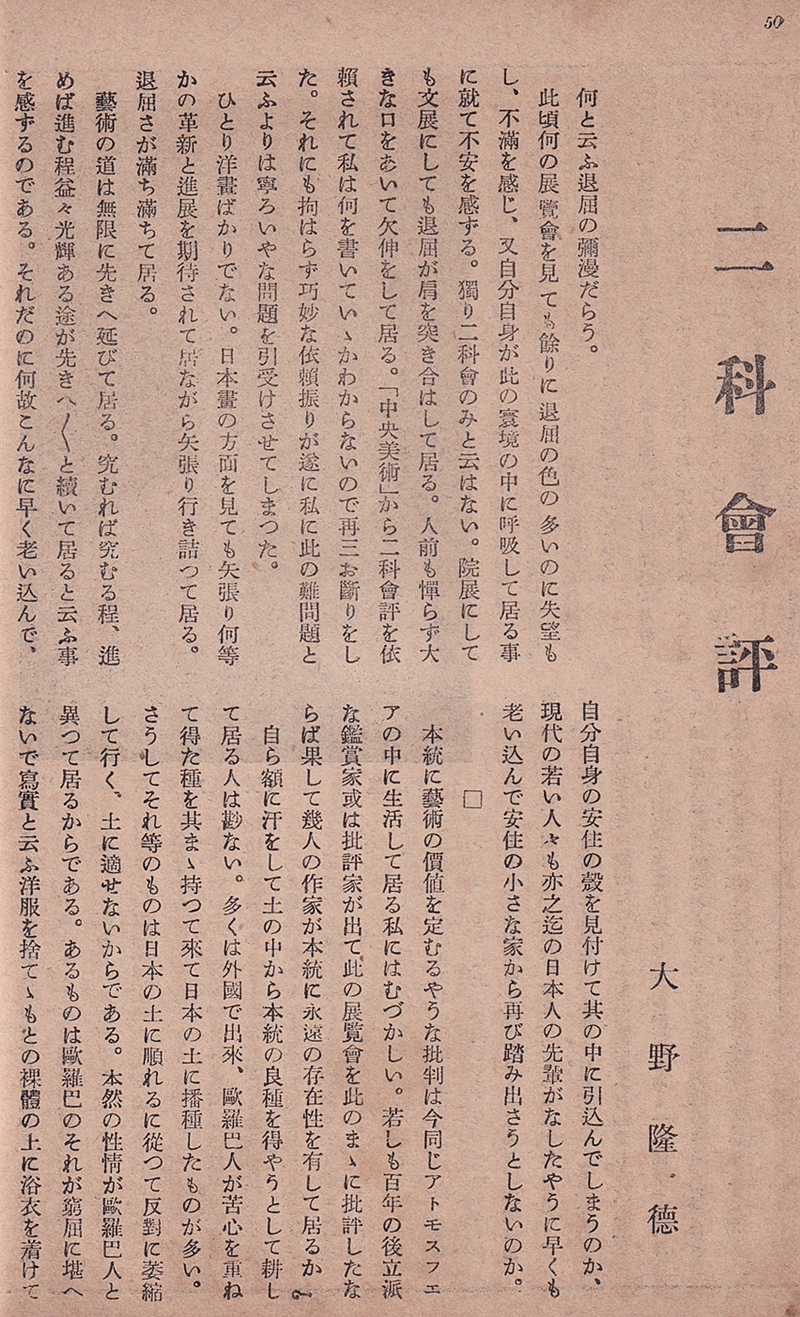 50
二科會評
大野隆德
何と云ふ退屈の彌漫だらう。
此頃何の展覽會を見ても餘りに退屈の色の多いのに失望も
し、不滿を感じ、又自分自身が此の寰境の中に呼吸して居る事
に就て不安を感ずる。獨り二科會のみと云はない。院展にして
も文展にしても退屈が肩を突き合はして居る。人前も憚らず大
きな口をあいて欠伸をして居る。「中央美術」から二科會評を依
賴されて私は何を書いていゝかわからないので再三お斷りをし
た。それにも拘はらず巧妙な依賴振りが遂に私に此の難問題と
云ふよりは寧ろいやな問題を引受けさせてしまつた。
ひとり洋畫ばかりでない。日本畫の方面を見ても矢張り何等
かの革新と進展を期待されて居ながら矢張り行き詰つて居る。
退屈さが滿ち滿ちて居る。
藝術の道は無限に先きへ延びて居る。究むれば究むる程、進
めば進む程益々光輝ある途が先きへ〳〵と續いて居ると云ふ事
を感ずるのである。それだのに何故こんなに早く老い込んで、
自分自身の安住の殼を見付けて其の中に引込んでしまうのか、
現代の若い人々も亦之迄の日本人の先輩がなしたやうに早くも
老い込んで安住の小さな家から再び踏み出さうとしないのか。
□
本統に藝術の價値を定むるやうな批判は今同じアトモスフエ
アの中に生活して居る私にはむづかしい。若しも百年の後立派
な鑑賞家或は批評家が出て此の展覽會を此のまゝに批評したな
らば果して幾人の作家が本統に永遠の存在性を有して居るか？
自ら額に汗をして土の中から本統の良種を得やうとして耕し
て居る人は尠ない。多くは外國で出來、歐羅巴人が苦心を重ね
て得た種を其まゝ持つて來て日本の土に播種したものが多い。
さうしてそれ等のものは日本の土に順れるに從つて反對に萎縮
して行く、土に適せないからである。本然の性情が歐羅巴人と
異つて居るからである。あるものは歐羅巴のそれが窮屈に堪へ
ないで寫實と云ふ洋服を捨てゝもとの裸體の上に浴衣を着けて